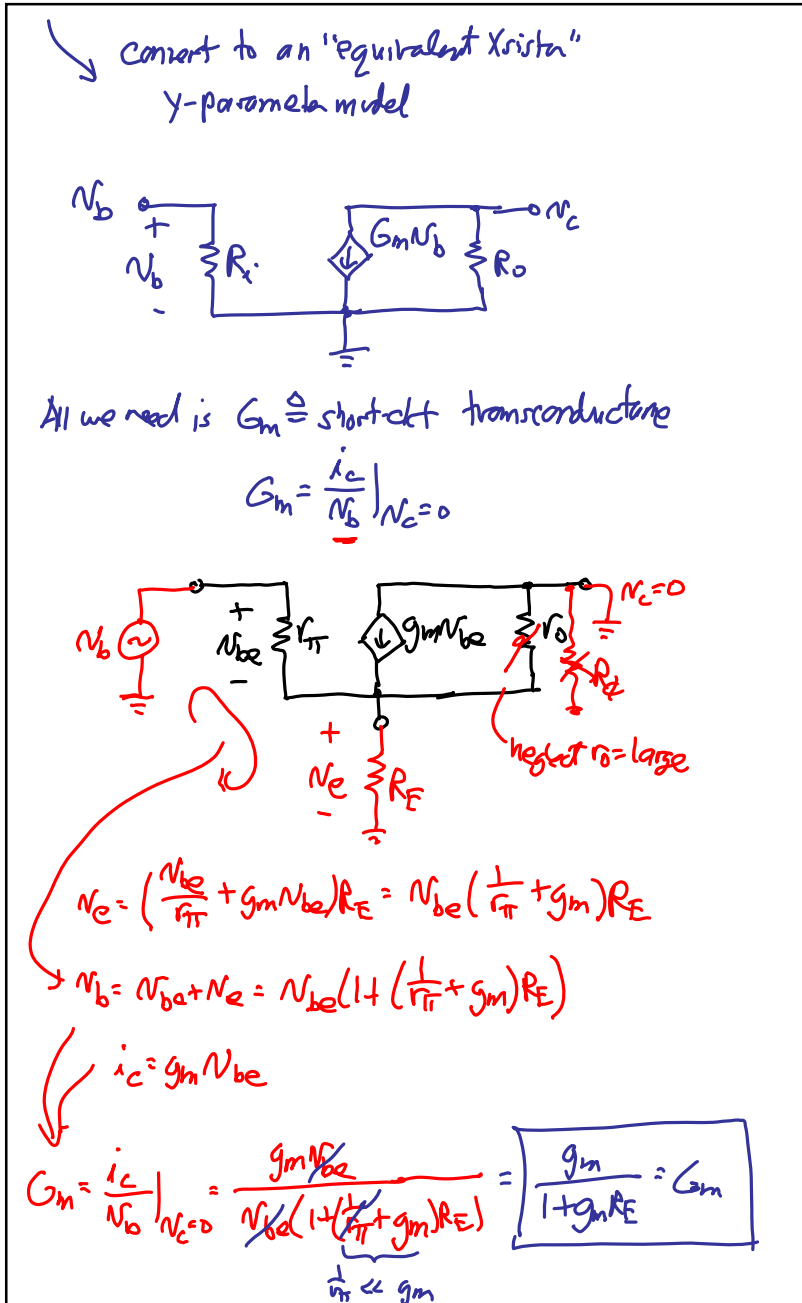 convert to an "equivalent Xsistor"
y-parameter model
v_b
+
v_b
-
R_i
G_m v_b
R_o
v_c
All we need is G_m ≜ short-ckt transconductance
G_m = i_c / v_b |_{v_c=0}
v_b
+
v_be
-
r_π
g_m v_be
r_o
v_c=0
R_c
neglect r_o = large
+
v_e
-
R_E
v_e = (v_be / r_π + g_m v_be) R_E = v_be (1/r_π + g_m) R_E
v_b = v_be + v_e = v_be (1 + (1/r_π + g_m) R_E)
i_c = g_m v_be
G_m = i_c / v_b |_{v_c=0} = g_m v_be / v_be (1 + (1/r_π + g_m) R_E) = g_m / 1 + g_m R_E = G_m
1/r_π << g_m